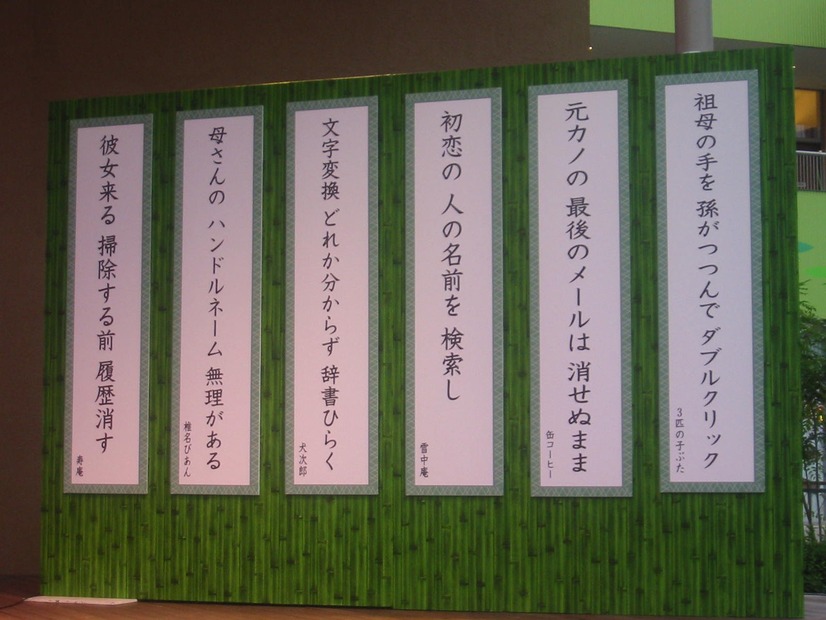 祖母の手を 孫がつつんで ダブルクリック
3匹の子ぶた
元カノの 最後のメールは 消せぬまま
缶コーヒー
初恋の 人の名前を 検索し
雪中庵
文字変換 どれか分からず 辞書ひらく
犬次郎
母さんの ハンドルネーム 無理がある
椎名びあん
彼女来る 掃除する前 履歴消す
寿庵